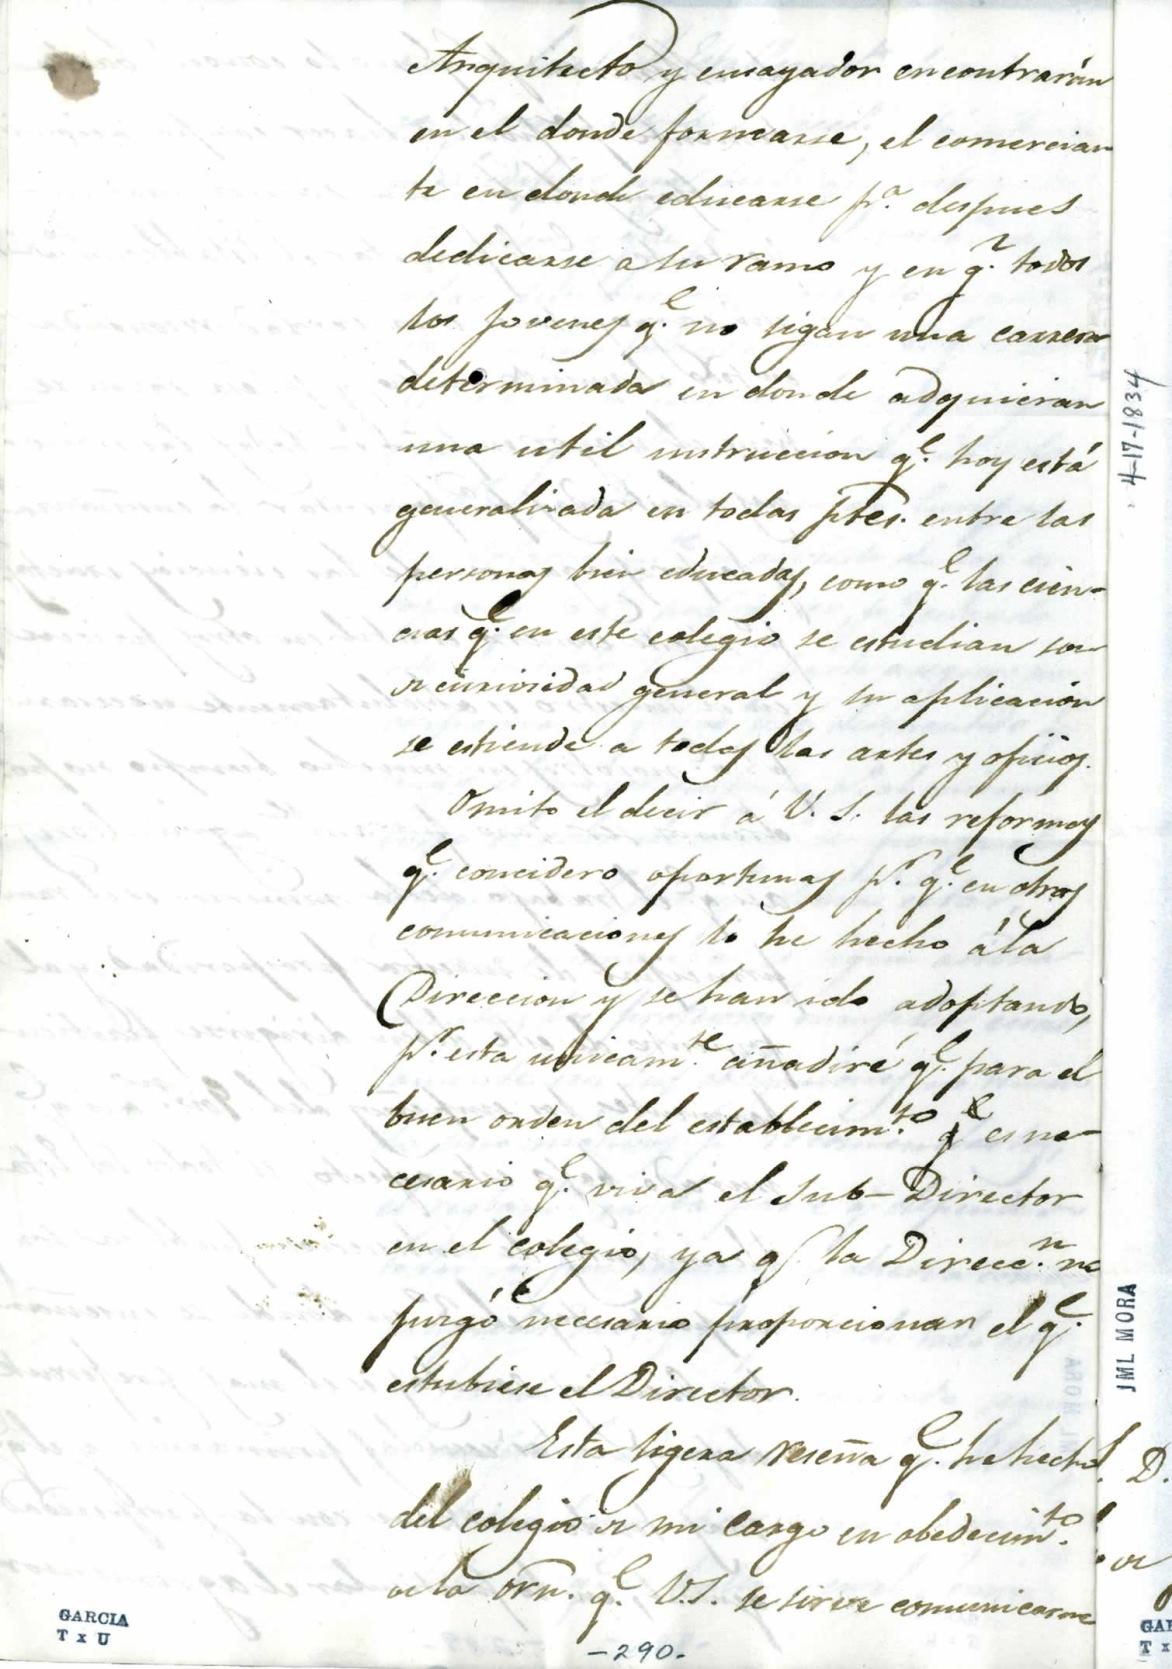 Arquitecto y ensayador encontrarán
en el donde formarse, el comercian
te en donde educarse pª. despues
dedicarse a su ramo y en qe. todos
los jovenes qe. no sigan una carrera
determinada en donde adquieran
una util instruccion qe. hoy está
generalizada en todas ptes. entre las
personas bien educadas, como qe. las cien-
cias qe. en este colegio se estudian son
de curiosidad general y su aplicacion
se estiende a todas las artes y oficios.
Omito el decir á V. S. las reformas
qe. concidero oportunas pr. qe. en otras
comunicaciones lo he hecho á la
Direccion y se han ido adoptando,
pr. esta unicamte. añadiré qe. para el
buen orden del establecimto. qe es ne-
cesario qe. viva el Sub-Director
en el colegio, ya q la Direccn. no
jusgó necesario proporcionar el qe.
estubiese el Director.
Esta ligera reseña qe. he hecho
del colegio de mi cargo en obedecimto.
de la orn. qe. V.S. se sirve comunicarme
-290.
GARCIA
T x U
4-17-1834
JML MORA
D.
de
GAR
T x